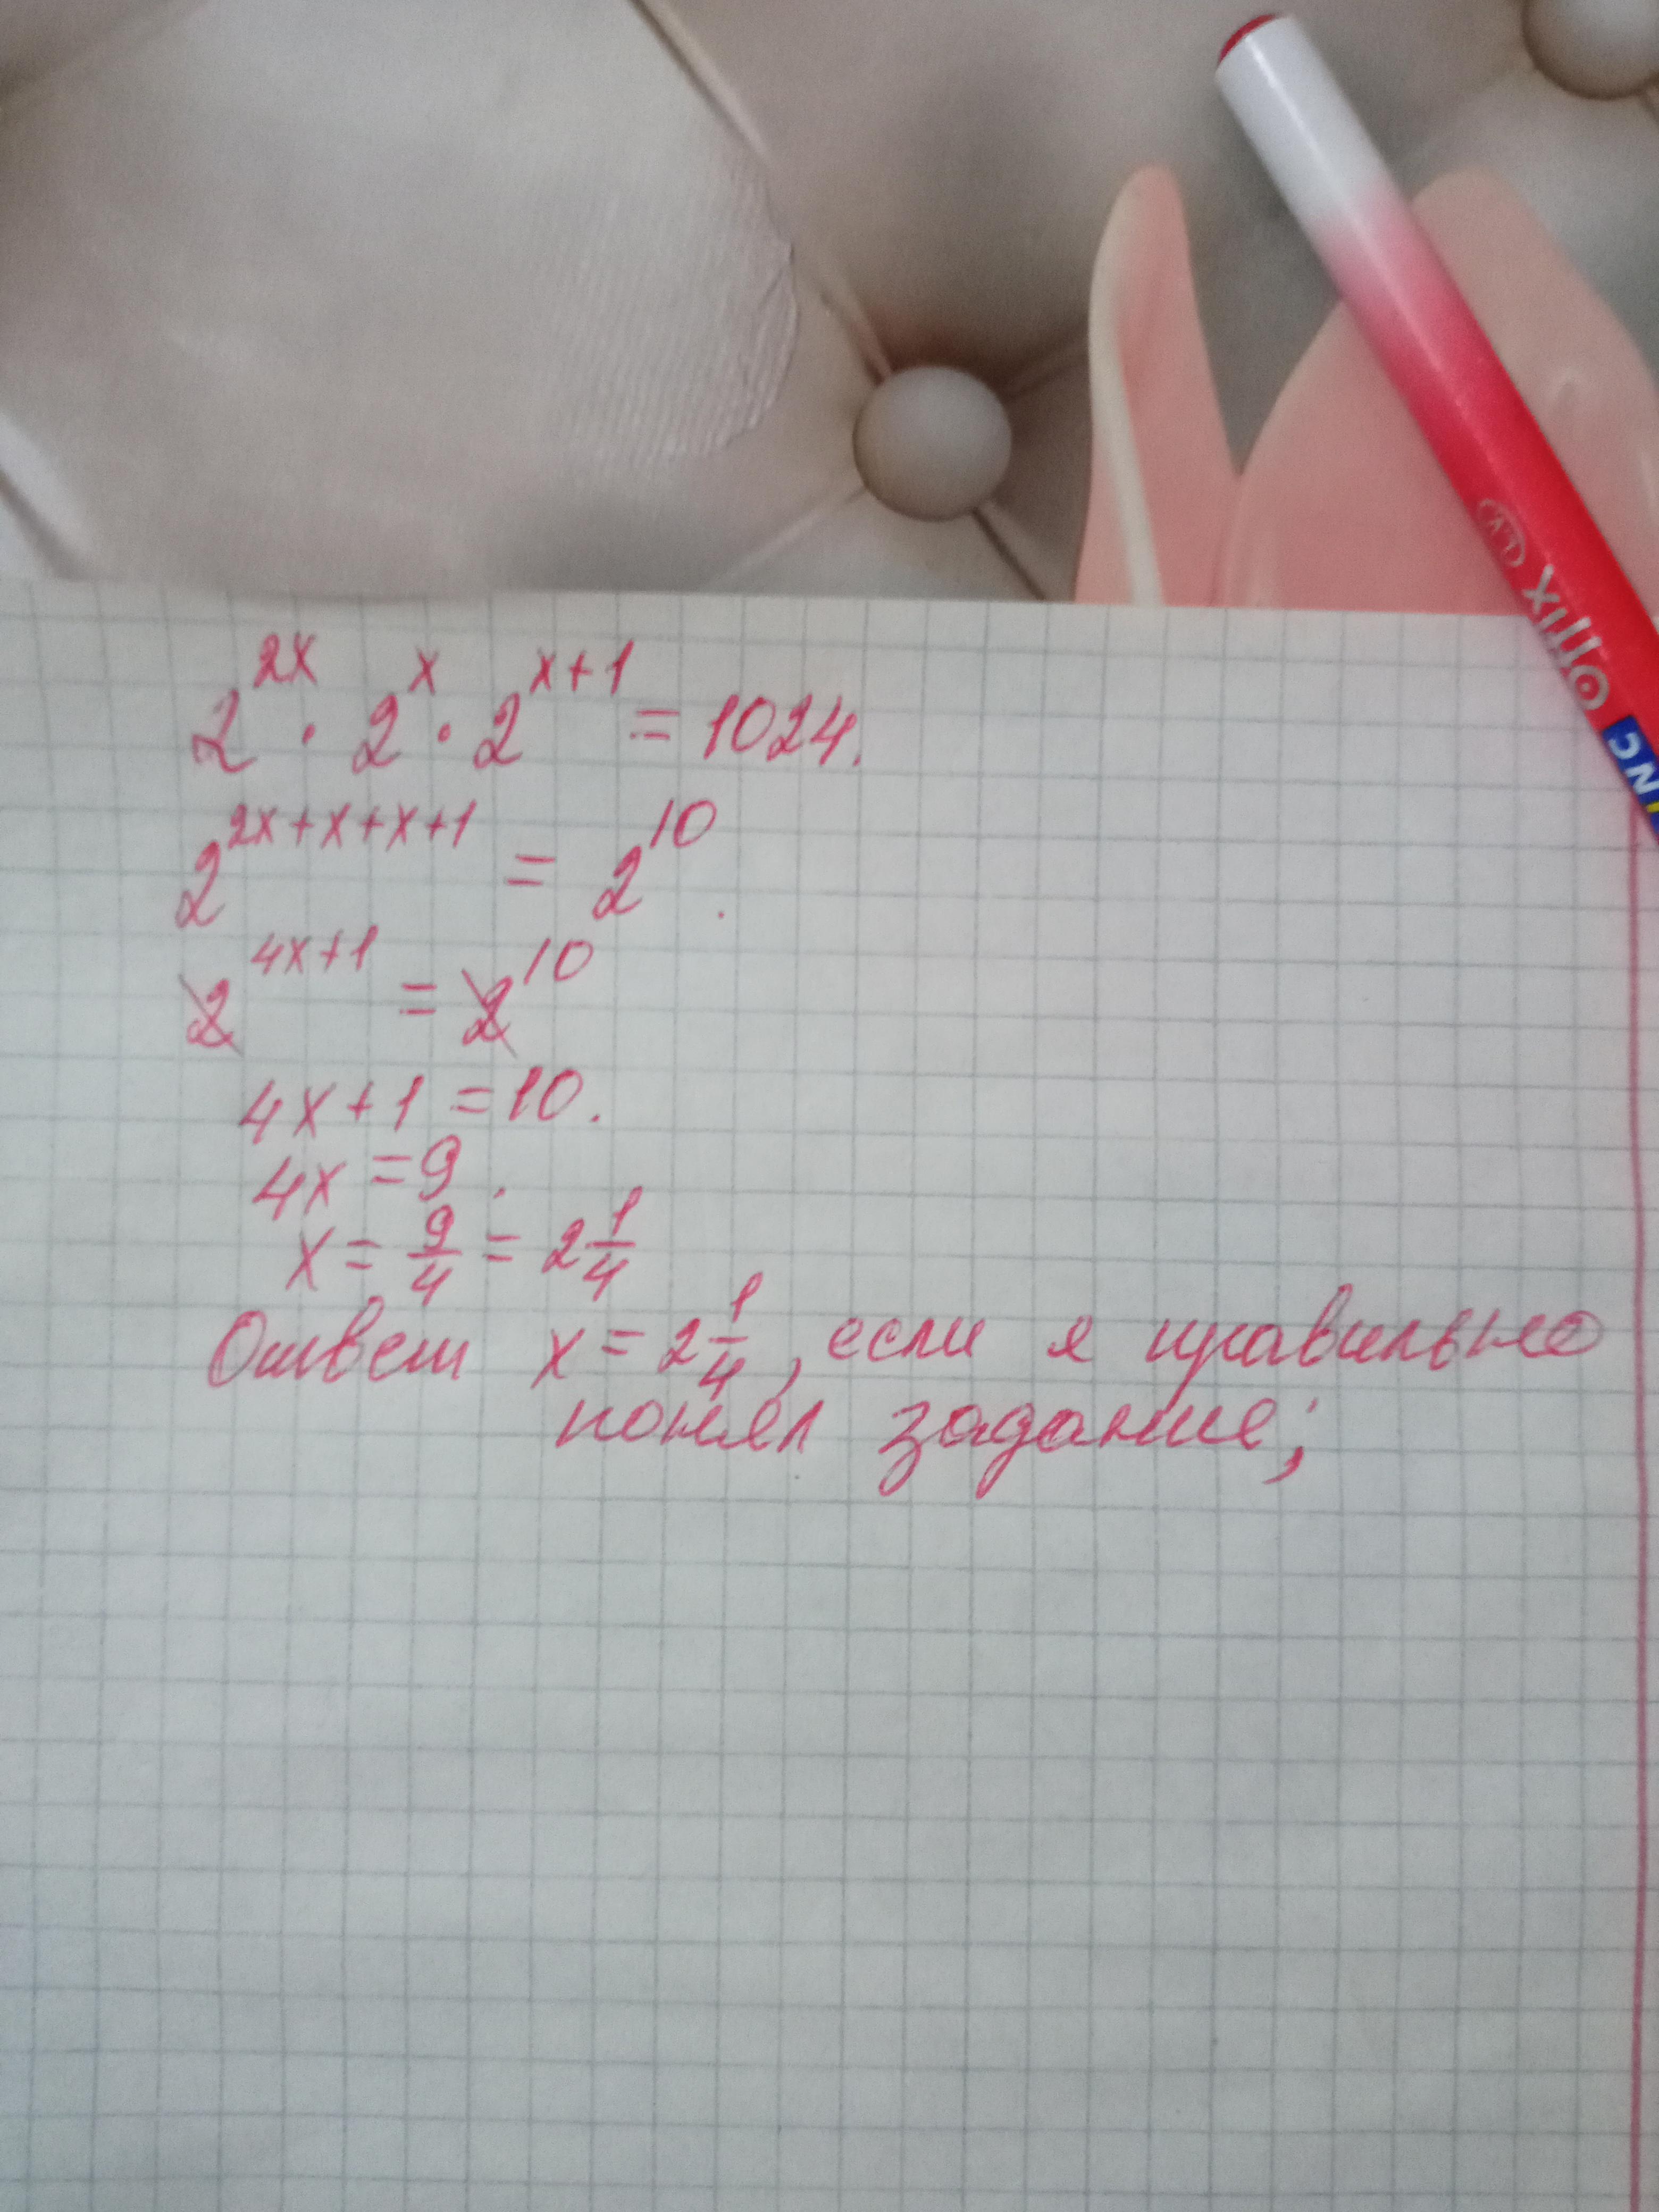 2^{2x} · 2^{x} · 2^{x+1} = 1024.
2^{2x+x+x+1} = 2^{10}.
2^{4x+1} = 2^{10}
4x + 1 = 10.
4x = 9.
x = 9/4 = 2 1/4
Ответ x = 2 1/4, если я правильно
понял задание;